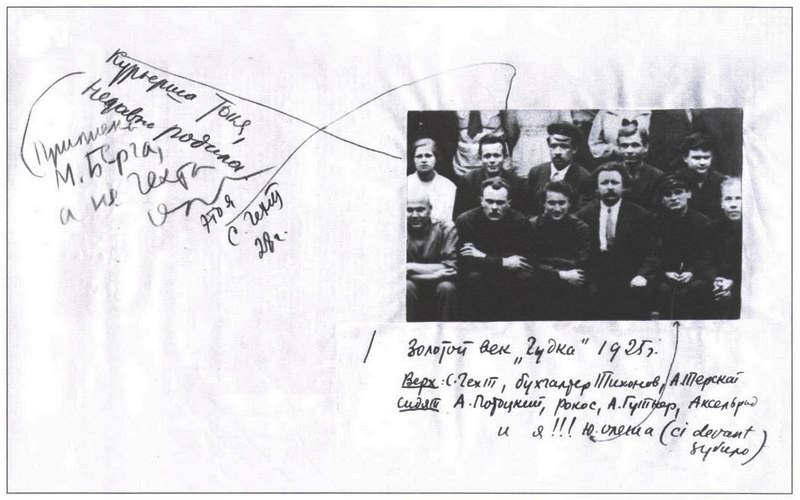 Курьерша Тоня,
недавно родила
Примеч.
М. Берга,
а не Гехта
Это я
С. Гехт
28 г.
Золотой век „Гудка" 1925 г.
Верх: С. Гехт, бухгалтер Тихонов, А. Терской
Сидят А. Потоцкий, Рокос, А. Гутнер, Аксельрод
и я!!! Ю. Олеша (ci devant
Зубило)